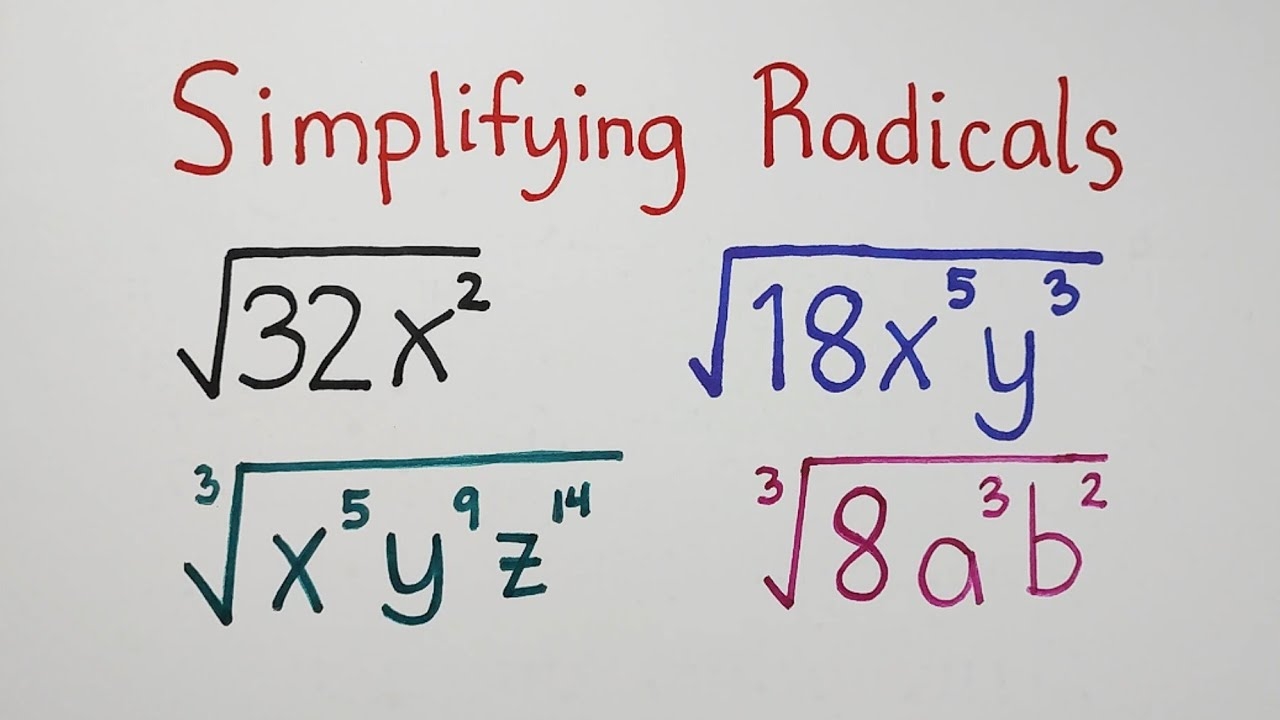 Simplifying Radicals
√32x² √18x⁵y³
³√x⁵y⁹z¹⁴ ³√8a³b²